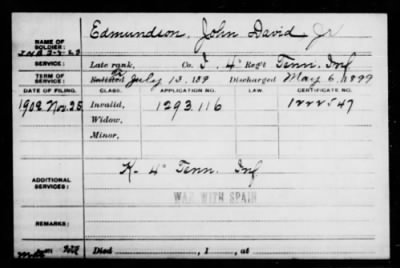 NAME OF SOLDIER: Edmundson, John David Jr
SERVICE: Late rank, Co. I, 4" Reg't Tenn. Inf
TERM OF SERVICE: Enlisted July 13, 189 Discharged May 6, 1899
DATE OF FILING. CLASS. APPLICATION NO. LAW. CERTIFICATE NO.
1902 Nov. 25 Invalid, 1293.116 1222547
Widow,
Minor,
ADDITIONAL SERVICES: K- 4" Tenn. Inf
WAR WITH SPAIN
REMARKS:
Died , 1 , at